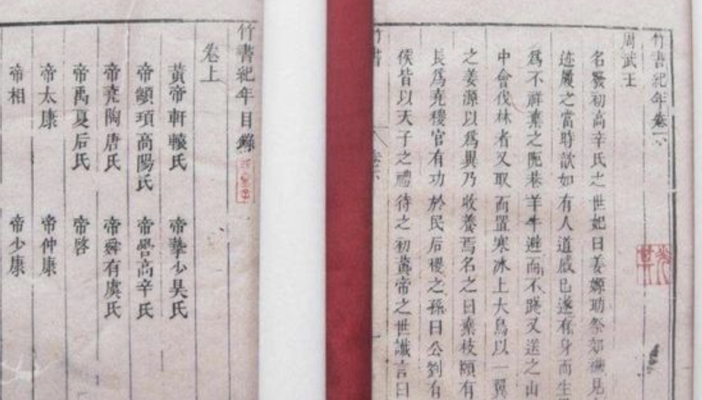 竹書紀年目錄
卷上
黃帝軒轅氏 帝摯少昊氏
帝顓頊高陽氏 帝嚳高辛氏
帝堯陶唐氏 帝舜有虞氏
帝禹夏后氏 帝啓
帝太康 帝仲康
帝相 帝少康
竹書紀年卷六
周武王
名發初高辛氏之世妃曰姜嫄助祭郊禖見
迹履之當時歆如有人道感已遂有身而生
為不祥棄之阨巷羊牛避而不踐又送之山
中會伐林者又取而置寒冰上大鳥以一翼
之姜源以為異乃收養焉名之曰棄枝頤有
長為堯稷官有功於民后稷之孫曰公劉有
侯皆以天子之禮待之初黃帝之世讖言曰
竹書 卷六